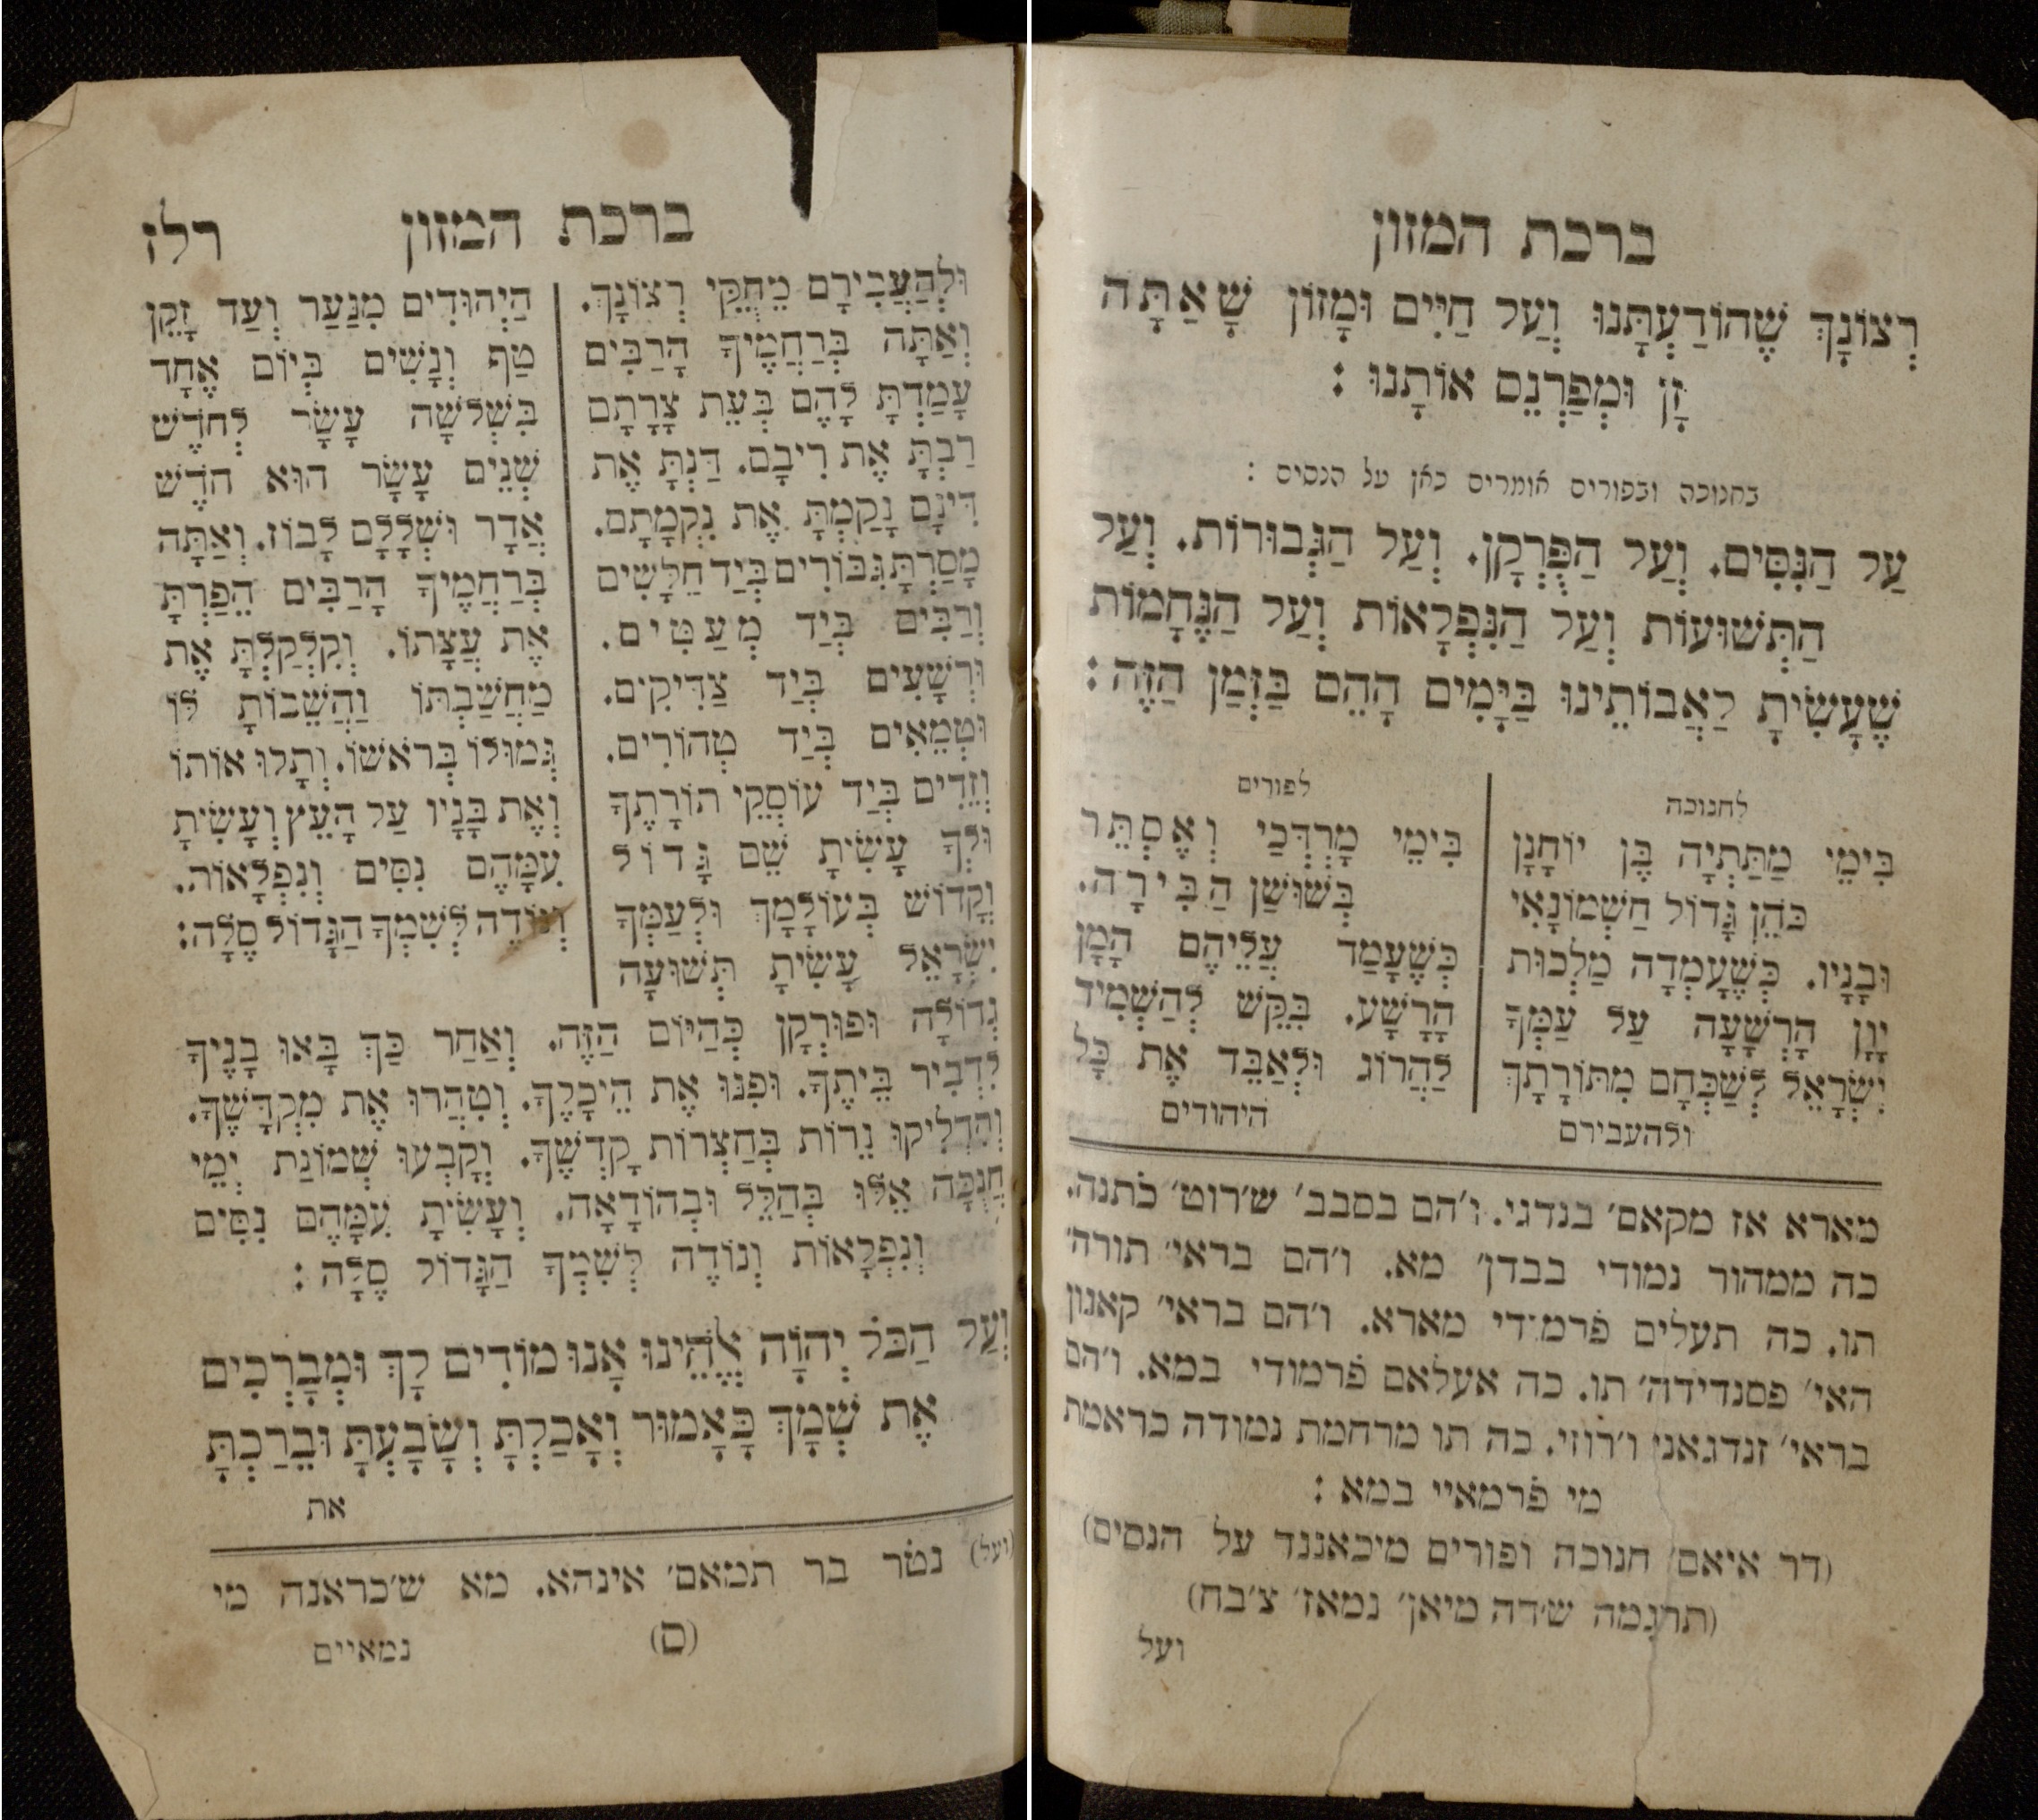 ברכת המזון
רְצוֹנָךְ שֶׁהוֹדַעְתָּנוּ וְעַל חַיִּים וּמָזוֹן שָׁאַתָּה
זָן וּמְפַרְנֵם אוֹתָנוּ :
בחנוכה ובפורים אומרים כאן על הנסים :
עַל הַנִּסִּים. וְעַל הַפֻּרְקָן. וְעַל הַגְּבוּרוֹת. וְעַל
הַתְּשׁוּעוֹת וְעַל הַנִּפְלָאוֹת וְעַל הַנֶּחָמוֹת
שֶׁעָשִׂיתָ לַאֲבוֹתֵינוּ בַּיָּמִים הָהֵם בַּזְּמַן הַזֶּה :
לחנוכה
בִּימֵי מַתַּתְיָה בֶּן יוֹחָנָן
כֹּהֵן גָּדוֹל חַשְׁמוֹנָאִי
וּבָנָיו. כְּשֶׁעָמְדָה מַלְכוּת
יָוָן הָרְשָׁעָה עַל עַמְּךָ
יִשְׂרָאֵל לְשַׁכְּחָם מִתּוֹרָתָךְ
ולהעבירם
לפורים
בִּימֵי מָרְדְּכַי וְאֶסְתֵּר
בְּשׁוּשַׁן הַבִּירָה.
כְּשֶׁעָמַד עֲלֵיהֶם הָמָן
הָרָשָׁע. בִּקֵּשׁ לְהַשְׁמִיד
לַהֲרוֹג וּלְאַבֵּד אֶת כָּל
היהודים
מארא אז מקאם׳ בנדגי. ו׳הם בסבב׳ ש׳רוט׳ כֿתנה.
כה ממהור נמודי בבדן׳ מא. ו׳הם בראי׳ תורה׳
תו. כה תעלים פֿרמודי מארא. ו׳הם בראי׳ קאנון
האי׳ פסנדידה׳ תו. כה אעלאם פֿרמודי במא. ו׳הם
בראי׳ זנדגאני ו׳רוזי. כה תו מרחמת נמודה כראמת
מי פֿרמאיי במא :
(דר איאם׳ חנוכה ופורים מיכֿאננד על הנסים)
(תרגמה ש׳דה מיאן׳ נמאז׳ צ׳בח)
ועל
ברכת המזון רלז
וּלְהַעֲבִירָם מֵחֻקֵּי רְצוֹנָךְ.
וְאַתָּה בְּרַחֲמֶיךָ הָרַבִּים
עָמַדְתָּ לָהֶם בְּעֵת צָרָתָם
רַבְתָּ אֶת רִיבָם. דַּנְתָּ אֶת
דִּינָם נָקַמְתָּ אֶת נִקְמָתָם.
מָסַרְתָּ גִּבּוֹרִים בְּיַד חַלָּשִׁים
וְרַבִּים בְּיַד מְעַטִּים.
וּרְשָׁעִים בְּיַד צַדִּיקִים.
וּטְמֵאִים בְּיַד טְהוֹרִים.
וְזֵדִים בְּיַד עוֹסְקֵי תוֹרָתֶךָ
וּלְךָ עָשִׂיתָ שֵׁם גָּדוֹל
וְקָדוֹשׁ בְּעוֹלָמָךְ וּלְעַמְּךָ
יִשְׂרָאֵל עָשִׂיתָ תְּשׁוּעָה
הַיְהוּדִים מִנַּעַר וְעַד זָקֵן
טַף וְנָשִׁים בְּיוֹם אֶחָד
בִּשְׁלֹשָׁה עָשָׂר לְחֹדֶשׁ
שְׁנֵים עָשָׂר הוּא חֹדֶשׁ
אֲדָר וּשְׁלָלָם לָבוֹז. וְאַתָּה
בְּרַחֲמֶיךָ הָרַבִּים הֵפַרְתָּ
אֶת עֲצָתוֹ. וְקִלְקַלְתָּ אֶת
מַחֲשַׁבְתּוֹ וַהֲשֵׁבוֹתָ לּוֹ
גְּמוּלוֹ בְּרֹאשׁוֹ. וְתָלוּ אוֹתוֹ
וְאֶת בָּנָיו עַל הָעֵץ וְעָשִׂיתָ
עִמָּהֶם נִסִּים וְנִפְלָאוֹת.
וְנוֹדֶה לְשִׁמְךָ הַגָּדוֹל סֶלָה:
גְדוֹלָה וּפוּרְקָן כְּהַיּוֹם הַזֶּה. וְאַחַר כַּךְ בָּאוּ בָנֶיךָ
לִדְבִיר בֵּיתֶךָ. וּפִנּוּ אֶת הֵיכָלֶךָ. וְטִהֲרוּ אֶת מִקְדָּשֶׁךָ.
וְהִדְלִיקוּ נֵרוֹת בְּחַצְרוֹת קָדְשֶׁךָ. וְקָבְעוּ שְׁמוֹנַת יְמֵי
חֲנֻכָּה אֵלּוּ בְּהַלֵּל וּבְהוֹדָאָה. וְעָשִׂיתָ עִמָּהֶם נִסִּים
וְנִפְלָאוֹת וְנוֹדֶה לְשִׁמְךָ הַגָּדוֹל סֶלָה :
וְעַל הַכֹּל יְהוָֹה אֱלֹהֵינוּ אָנוּ מוֹדִים לָךְ וּמְבָרְכִים
אֶת שְׁמָךְ כָּאָמוּר וְאָכַלְתָּ וְשָׂבָעְתָּ וּבֵרַכְתָּ
את
(ועל) נטֿר בר תמאם׳ אינהא. מא ש׳כראנה מי
(ם)
נמאיים